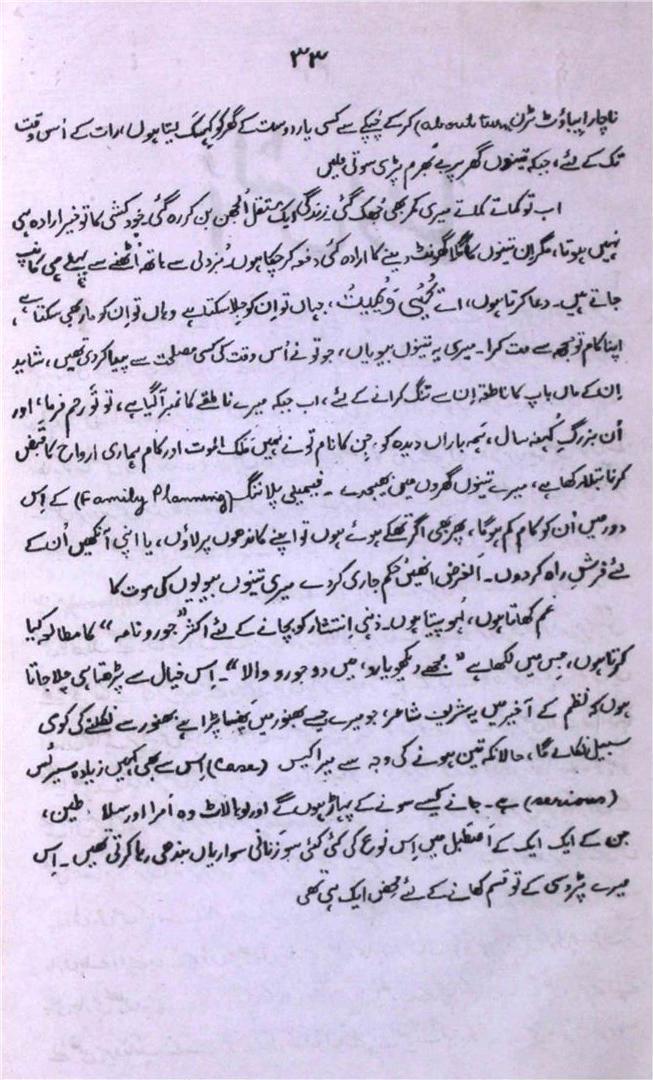 ۳۳
ناچار ایباؤٹ ٹرن (about turn) کرکے چپکے سے کسی یار دوست کے گھر کو کھسک لیتا ہوں، رات کے اُس وقت
تک کے لئے، جبکہ تینوں گھر پر بے مُحرم پڑی سوتی ملیں
اب تو کماتے کماتے میری کمر بھی جھک گئی۔ زندگی ایک مستقل اُلجھن بن کر رہ گئی۔ خودکشی کا تو خیر ارادہ ہی
نہیں ہوتا، مگر اِن تینوں کا گلا گھونٹ دینے کا ارادہ کئی دفعہ کر چکا ہوں۔ بُزدلی سے ہاتھ اُٹھنے سے پہلے ہی کانپ
جاتے ہیں۔ دعا کرتا ہوں، اے مُحیِی وَ مُمِیتُ، جہاں تو اِن کو جِلا سکتا ہے وہاں تو اِن کو مار بھی سکتا ہے،
اپنا کام تو مجھ سے مت کرا۔ میری یہ تینوں بیویاں، جو تو نے اُس وقت کی کسی مصلحت سے پیدا کردی تھیں، شاید
اِن کے ماں باپ کا ناطقہ اِن سے تنگ کرانے کے لئے، اب جبکہ میرے ناطقے کا نمبر آگیا ہے، تو تُو رحم فرما، اور
اُن بزرگِ کُہنہ سال، ہمہ باراں دیدہ کو، جن کا نام تو نے ہمیں مَلک الموت اور کام ہماری ارواح کا قبض
کرنا بتلا رکھا ہے، میرے تینوں گھروں میں بھیجدے۔ فیمیلی پلاننگ (Family Planning) کے اِس
دور میں اُن کو کام کم ہوگا، پھر بھی اگر تھکے ہوئے ہوں تو اپنے کاندھوں پر لاؤں، یا اپنی آنکھیں اُن کے
لئے فرشِ راہ کر دوں۔ اَلغرض انھیں حکم جاری کردے میری تینوں بیویوں کی موت کا
غم کھاتا ہوں، لُہو پیتا ہوں۔ ذہنی اِنتشار کو بچانے کے لئے اکثر "جورو نامہ" کا مطالعہ کیا
کرتا ہوں، جس میں لکھا ہے "مجھے دیکھو یارو، میں دو جورو والا"۔ اس خیال سے پڑھتا ہی چلا جاتا
ہوں کہ نظم کے آخیر میں یہ شریف شاعر، جو میرے جیسے بھنور میں پھنسا پڑا ہے بھنور سے نکلنے کی کوئی
سبیل نکالے گا، حالانکہ تین ہونے کی وجہ سے میرا کیس (Case) اِس سے بھی کہیں زیادہ سیرئس
(serious) ہے۔ جانے کیسے سونے کے پہاڑ ہوں گے اور لوہالاٹ وہ اُمرا اور سلاطین،
جن کے ایک ایک کے اَصطبل میں اِس نوع کی کئی کئی سو زنانی سواریاں بندھی رہا کرتی تھیں۔ اِس
میرے پڑوسی کے تو قسم کھانے کے لئے محض ایک ہی تھی